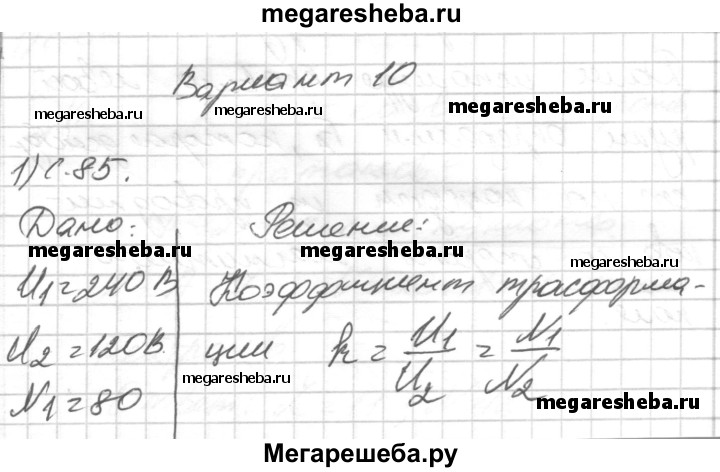 megaresheba.ru
Вариант 10
megaresheba.ru megaresheba.ru megaresheba.ru
1) С.85.
Дано: Решение:
megaresheba.ru megaresheba.ru megaresheba.ru
U₁=240 В Коэффициент трасформа-
U₂=120В. ции k = U₁/U₂ = N₁/N₂
megaresheba.ru megaresheba.ru
N₁=80
Мегарешеба.ру